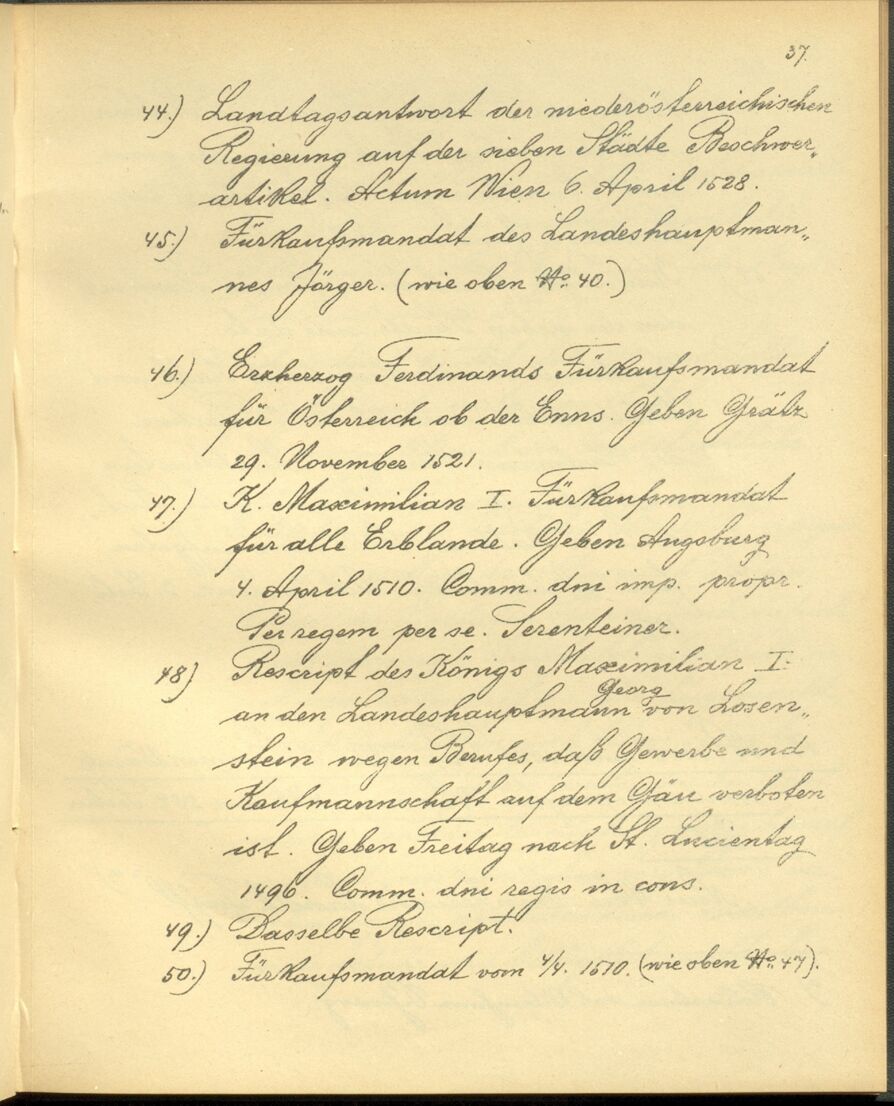 37.
44.) Landtagsantwort der niederösterreichischen
Regierung auf der sieben Städte Beschwer„
artikel. Actum Wien 6. April 1528.
45.) Fürkaufsmandat des Landeshauptman„
nes Jörger. (wie oben No. 40.)
46.) Erzherzog Ferdinands Fürkaufsmandat
für Österreich ob der Enns. Geben Grätz
29. November 1521.
47.) K. Maximilian I. Fürkaufsmandat
für alle Erblande. Geben Augsburg
4. April 1510. Comm. dni imp. propr.
Per regem per se. Serenteiner.
48) Rescript des Königs Maximilian I.
an den Landeshauptmann Georg von Losen„
stein wegen Berufes, daß Gewerbe und
Kaufmannschaft auf dem Gäu verboten
ist. Geben Freitag nach St. Lucientag
1496. Comm. dni regis in cons.
49.) Dasselbe Rescript.
50.) Fürkaufsmandat vom 4/4. 1510. (wie oben No. 47).